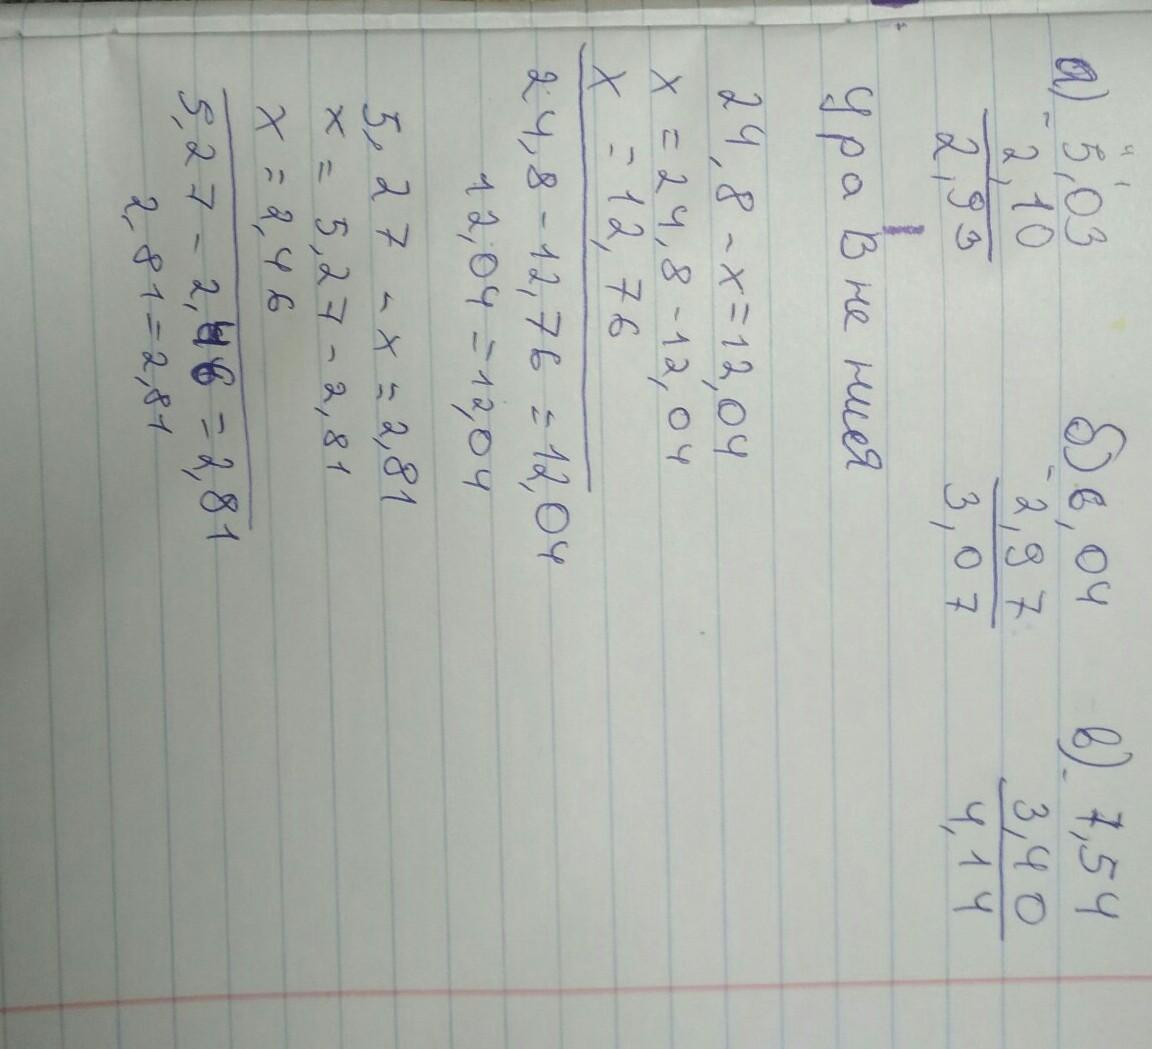 а) 5,03 б) 6,04 в) 7,54
- 2,10 - 2,97 - 3,40
2,93 3,07 4,14
Уравнения
24,8 - x = 12,04
x = 24,8 - 12,04
x = 12,76
24,8 - 12,76 = 12,04
12,04 = 12,04
5,27 - x = 2,81
x = 5,27 - 2,81
x = 2,46
5,27 - 2,46 = 2,81
2,81 = 2,81